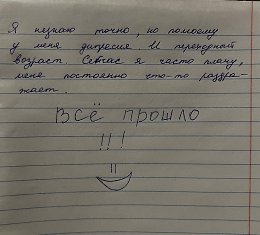 Я незнаю точно, но помоему
у меня дипресия. И переходной
возраст. Сейчас я часто плачу,
меня постоянно что-то раздра-
жает.
ВСЁ ПРОШЛО
!!!